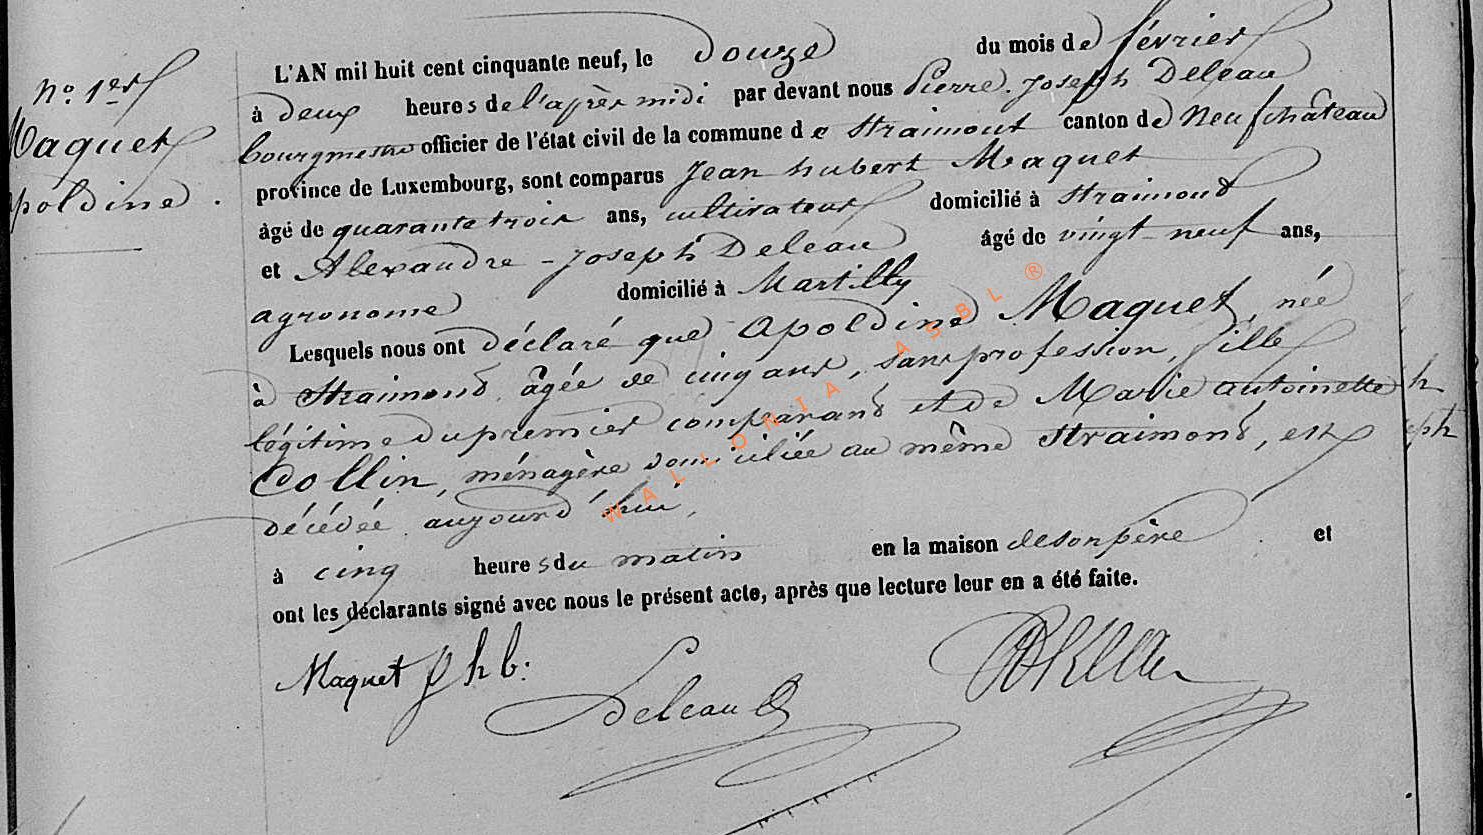 No. 1er
Maquet
poldine.
L'AN mil huit cent cinquante neuf, le douze du mois de février
à deux heures de l'après midi par devant nous Pierre-Joseph Deleau
bourgmestre officier de l'état civil de la commune de Straimont canton de Neufchâteau
province de Luxembourg, sont comparus Jean hubert Maquet
âgé de quarante trois ans, cultivateur domicilié à Straimond
et Alexandre-Joseph Deleau âgé de vingt-neuf ans,
agronome domicilié à Martilly
Lesquels nous ont déclaré que Apoldine Maquet, née
à Straimond, âgée de cinq ans, sans profession, fille
légitime du premier comparand et de Marie antoinette
Collin, ménagère domiciliée au même Straimond, est
décédée aujourd'hui,
à cinq heures du matin en la maison de son père et
ont les déclarants signé avec nous le présent acte, après que lecture leur en a été faite.
Maquet J h b:
Deleau
WALLONIA ASBL ®